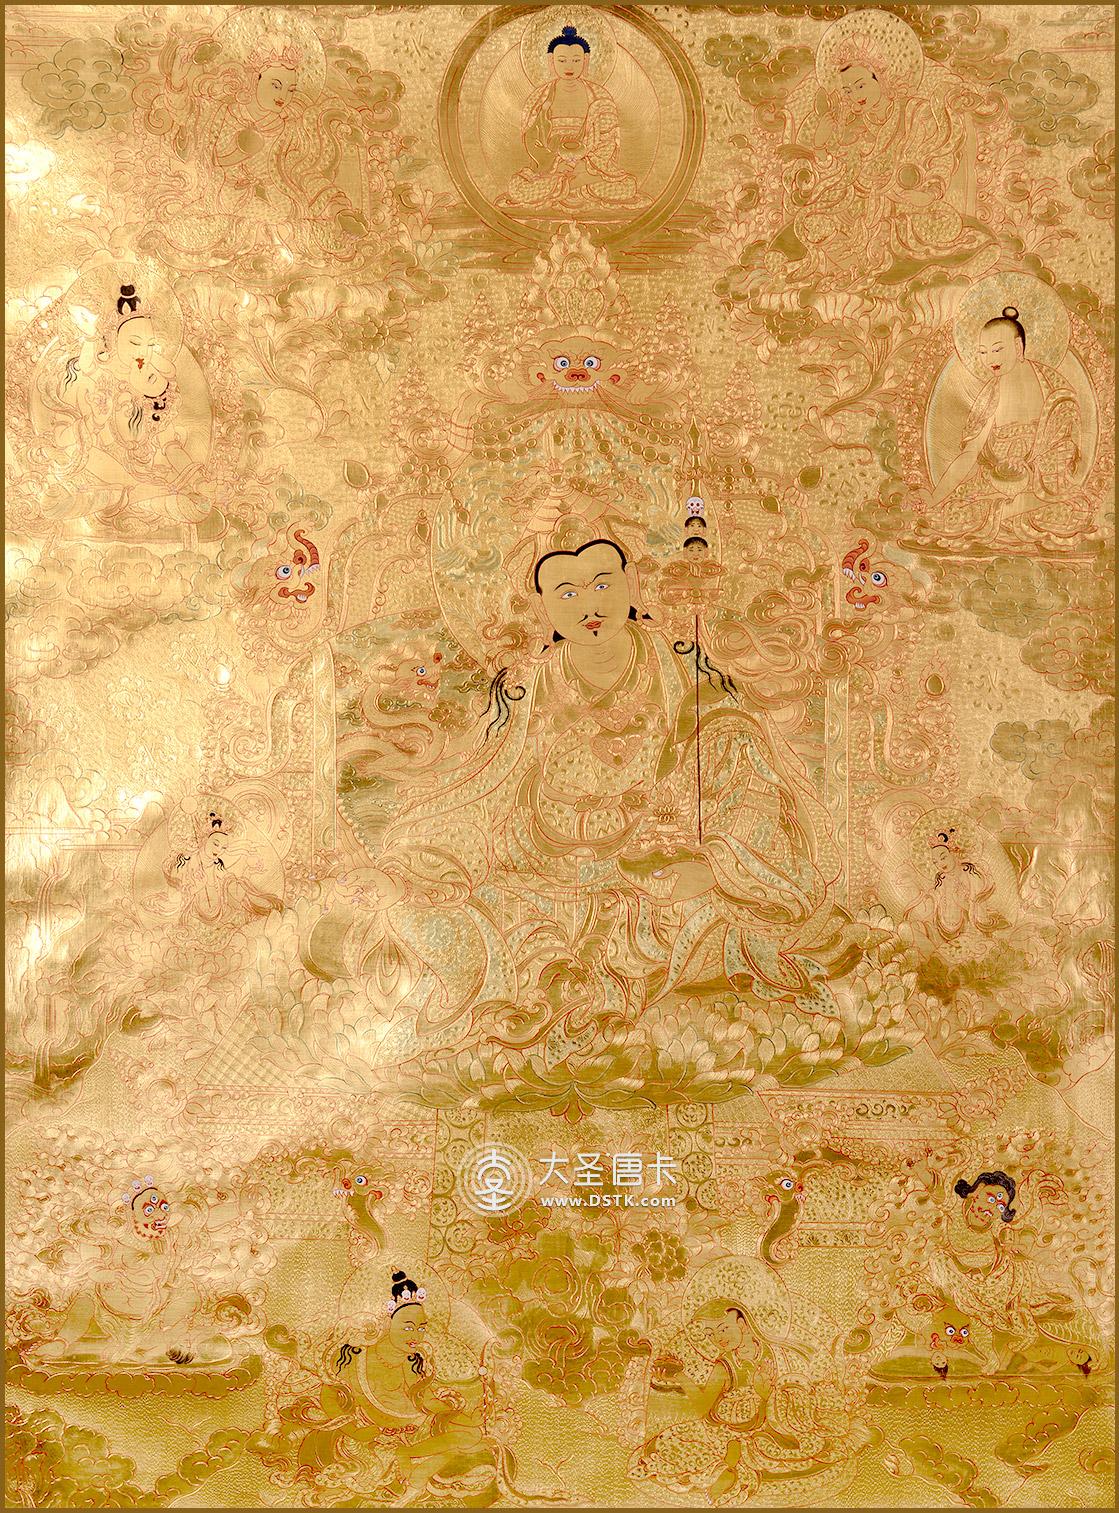 大圣唐卡
www.DSTK.com